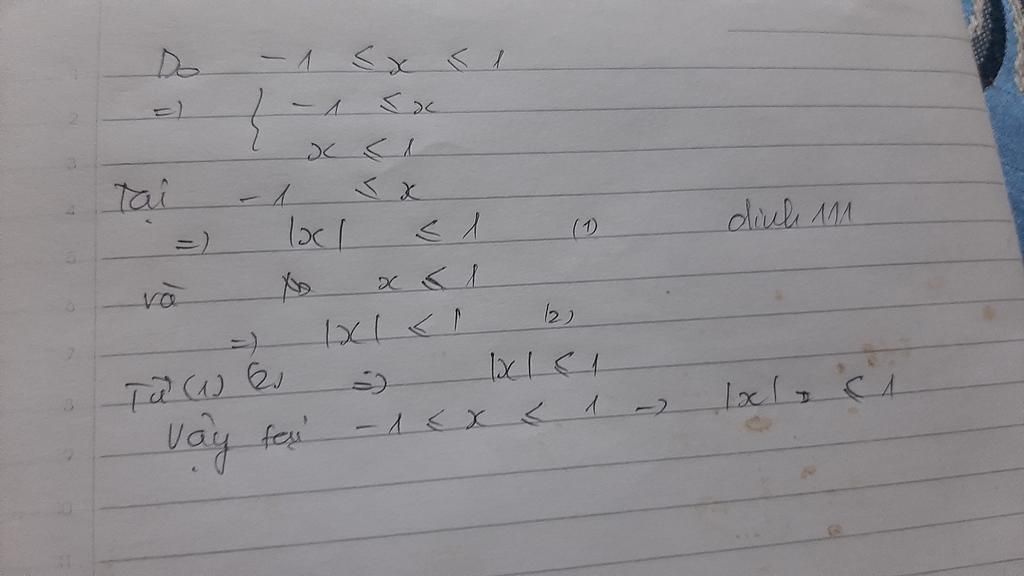 Do -1 ≤ x ≤ 1
=) { -1 ≤ x
x ≤ 1
Tại -1 ≤ x
=) |x| ≤ 1 (1) dinh 111
và x ≤ 1
=) |x| ≤ 1 (2)
Từ (1) (2) =) |x| ≤ 1
Vậy tại -1 ≤ x ≤ 1 -> |x| ≤ 1